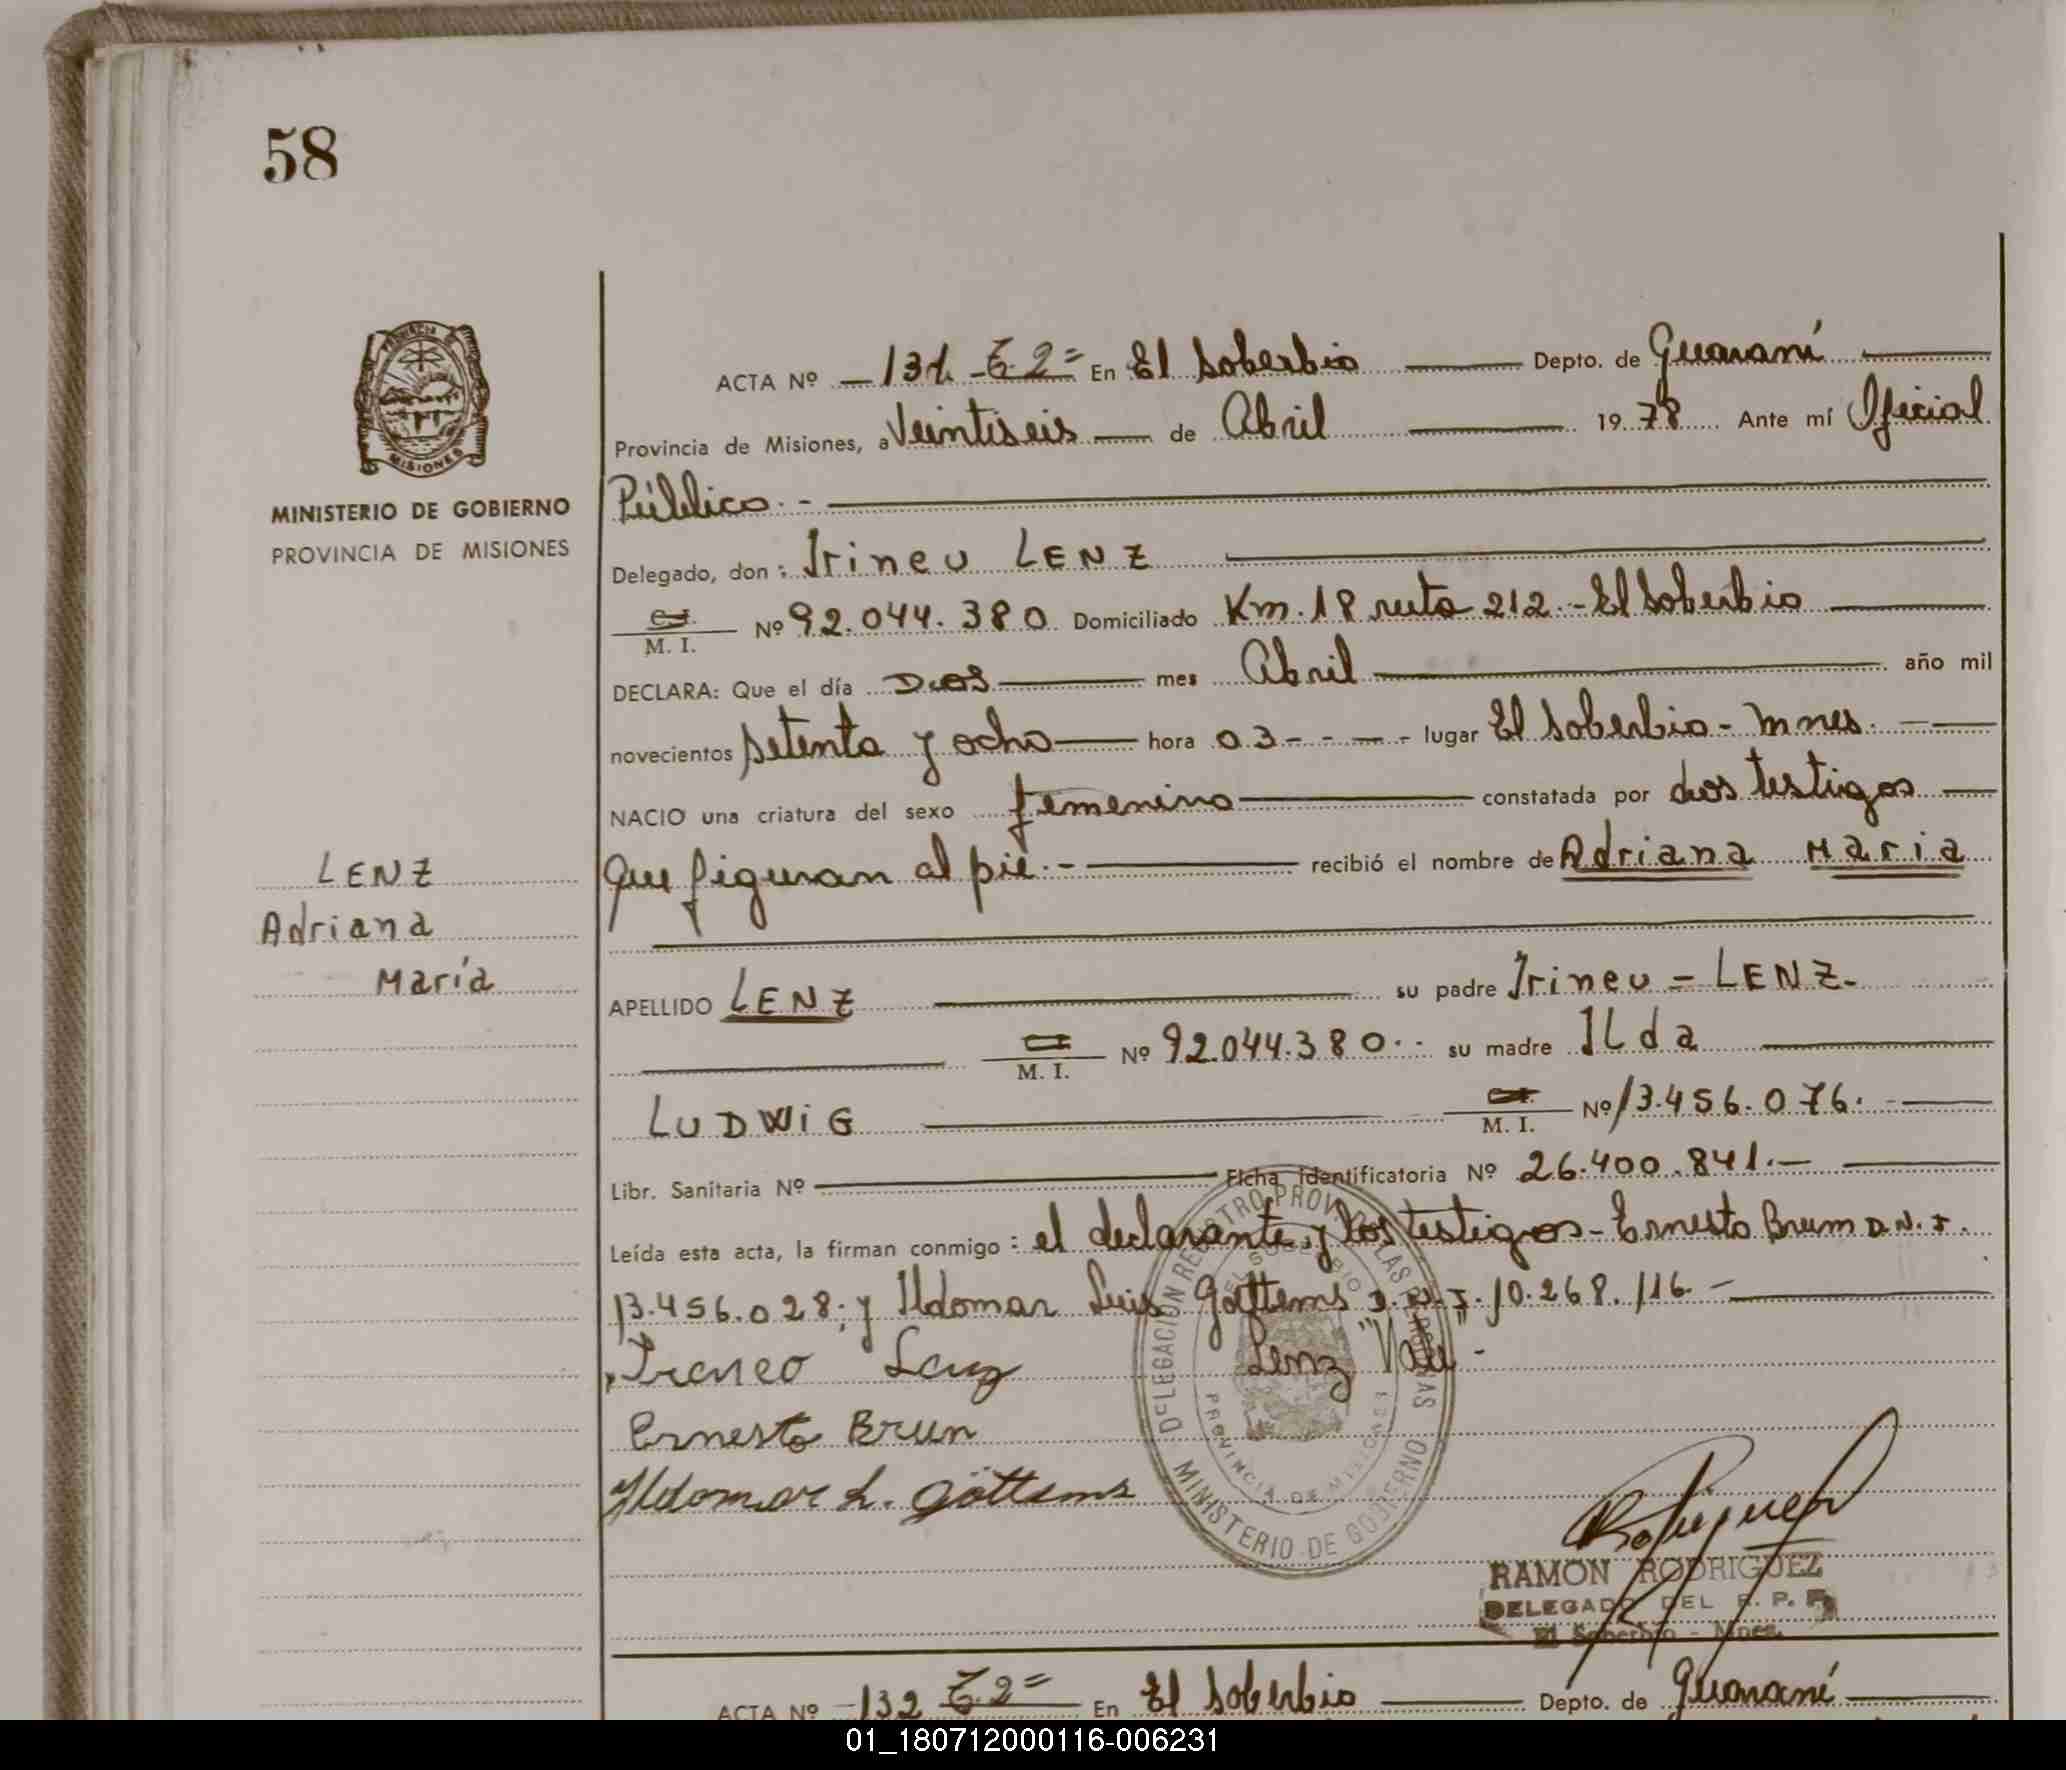 58
PROVINCIA
MISIONES
MINISTERIO DE GOBIERNO
PROVINCIA DE MISIONES
LENZ
Adriana
María
ACTA Nº 131 T.2= En El Soberbio Depto. de Guaraní
Provincia de Misiones, a Veintiseis de Abril 1978 Ante mí Oficial
Público.-
Delegado, don: Irineu LENZ
M. I. Nº 92.044.380 Domiciliado Km. 18 ruta 212.- El Soberbio
DECLARA: Que el día Dos mes Abril año mil
novecientos setenta y ocho hora 03 - - - - lugar El Soberbio - Mnes.
NACIO una criatura del sexo femenino constatada por dos testigos
que figuran al pie.- recibió el nombre de Adriana Maria
APELLIDO LENZ su padre Irineu = LENZ-
M. I. Nº 92.044.380.. su madre ILda
LUDWiG M. I. Nº 13.456.076.-
Libr. Sanitaria Nº Ficha Identificatoria Nº 26.400.841.-
Leída esta acta, la firman conmigo: el declarante y los testigos - Ernesto Brum D.N.I.
13.456.028; y Ildomar Luis Gottems D.N.I. 10.268.116.-
Lenz "Vale" -
Ernesto Brun
Ildomar L. Göttems
DELEGACION REGISTRO PROV. DE LAS PERSONAS
EL SOBERBIO
PROVINCIA DE MISIONES
MINISTERIO DE GOBIERNO
RAMON RODRIGUEZ
DELEGADO DEL R. P. P.
El Soberbio - Mnes.
ACTA Nº 132 T.2= En El Soberbio Depto. de Guaraní
01_180712000116-006231